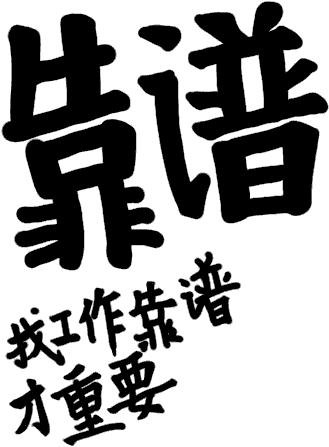 靠谱
找工作靠谱
才重要